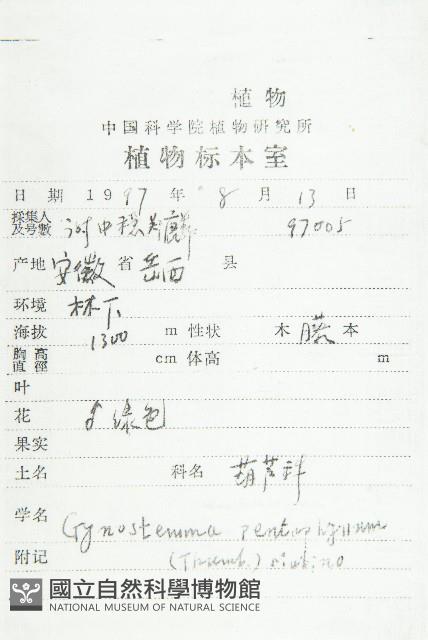 植物
中国科学院植物研究所
植物标本室
日期 1997 年 8 月 13 日
採集人及号數 97005
产地 安徽 省 岳西 县
环境 林下
海拔 1300 m 性状 木 藤 本
胸高直徑 cm 体高 m
叶
花 ♂绿色
果实
土名 科名 葫芦科
学名 Gynostemma pentaphyllum
附记 (Thunb.) Makino
國立自然科學博物館
NATIONAL MUSEUM OF NATURAL SCIENCE